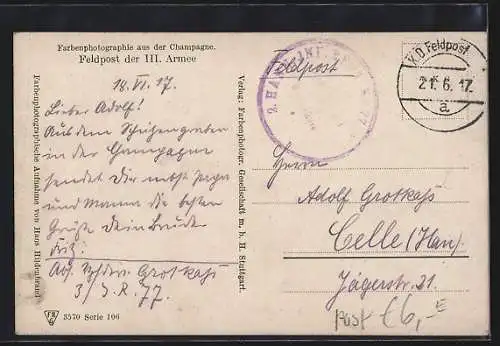 Farbenphotographie aus der Champagne.
Feldpost der III. Armee
18. VI. 17.
Lieber Adolf!
Aus dem Schützengraben
in der Champagne
sendet Dir nebst Papa
und Mama die besten
Grüße Dein Bruder
Fritz
Abs. Grotkass
3/I.R. 77.
3570 Serie 106
Farbenphotographische Aufnahme von Hans Hildenbrand
Verlag: Farbenphotogr. Gesellschaft m. b. H. Stuttgart.
Feldpost
K.D. Feldpost
21. 6. 17.
a
Herrn
Adolf Grotkass
Celle (Han)
Jägerstr. 31.
€6,-